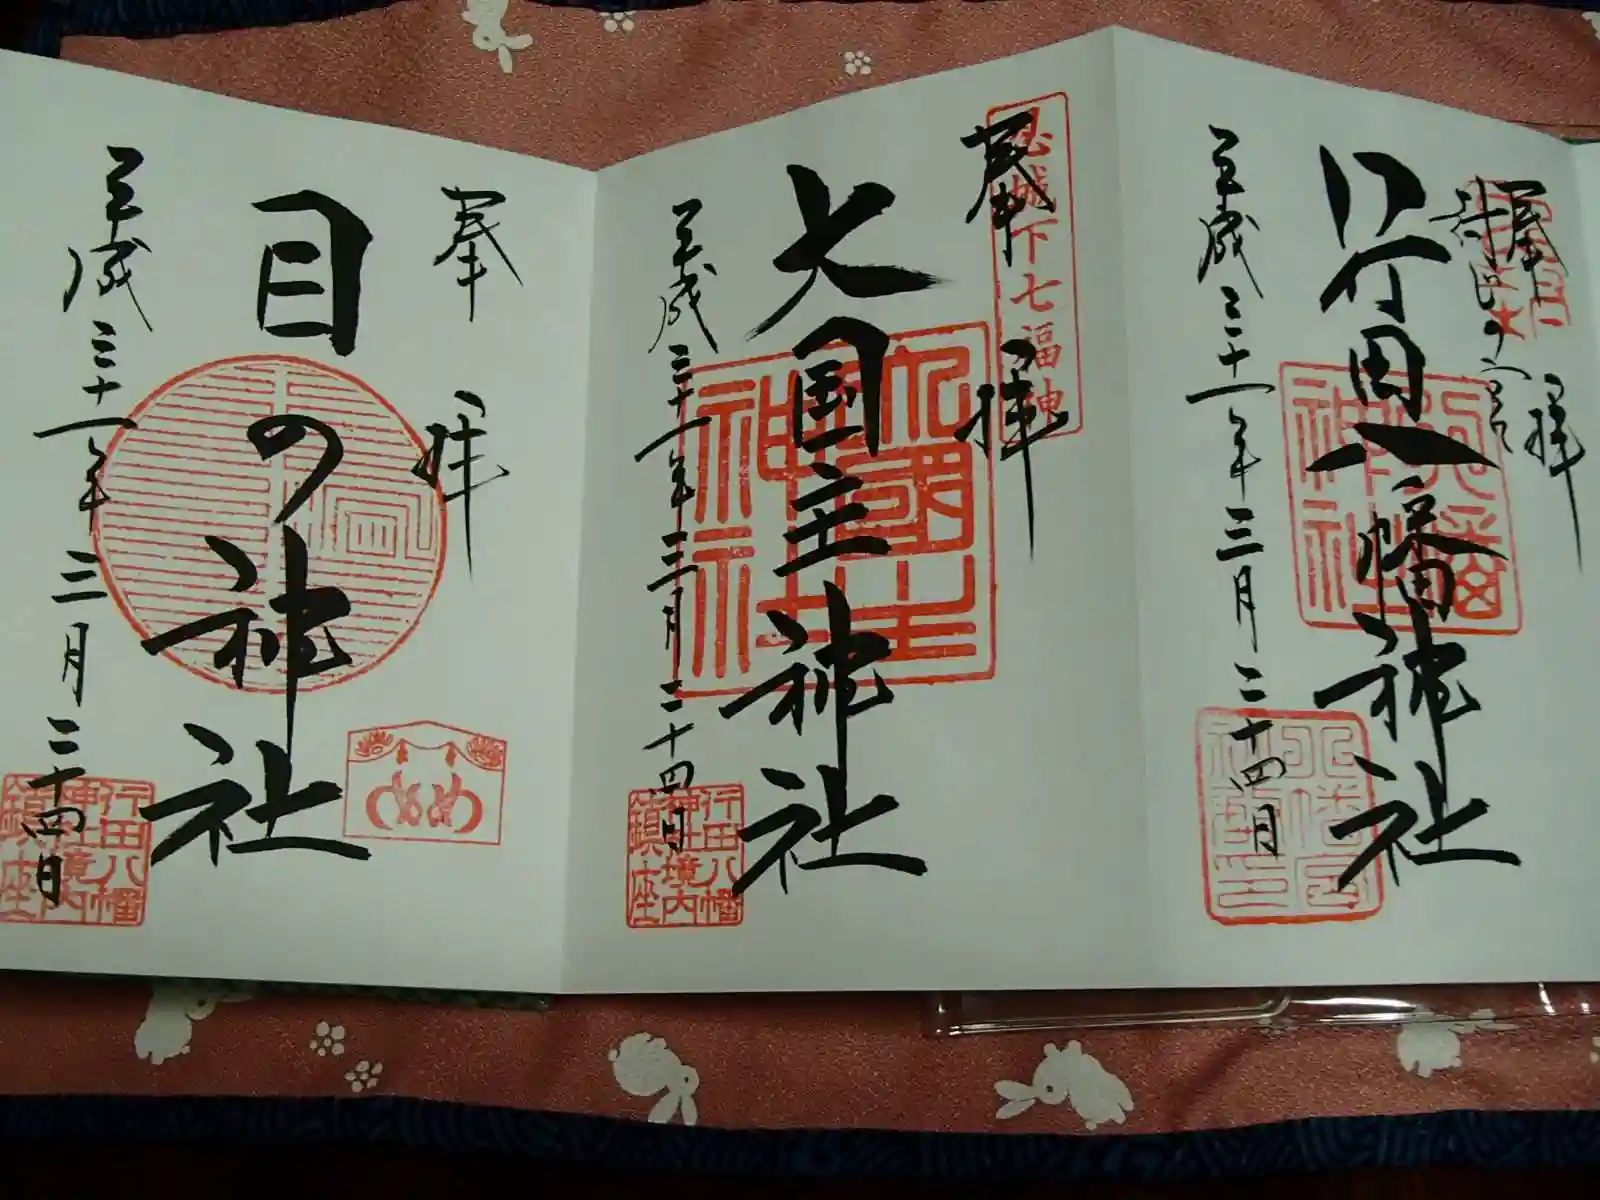 奉拝
封じの宮
行田八幡神社
平成三十一年三月二十四日
忍城下七福神
奉拝
大国主神社
大國主神社
平成三十一年三月二十四日
行田八幡
神社境内
鎮座
奉拝
目の神社
めめ
平成三十一年三月二十四日
行田八幡
神社境内
鎮座